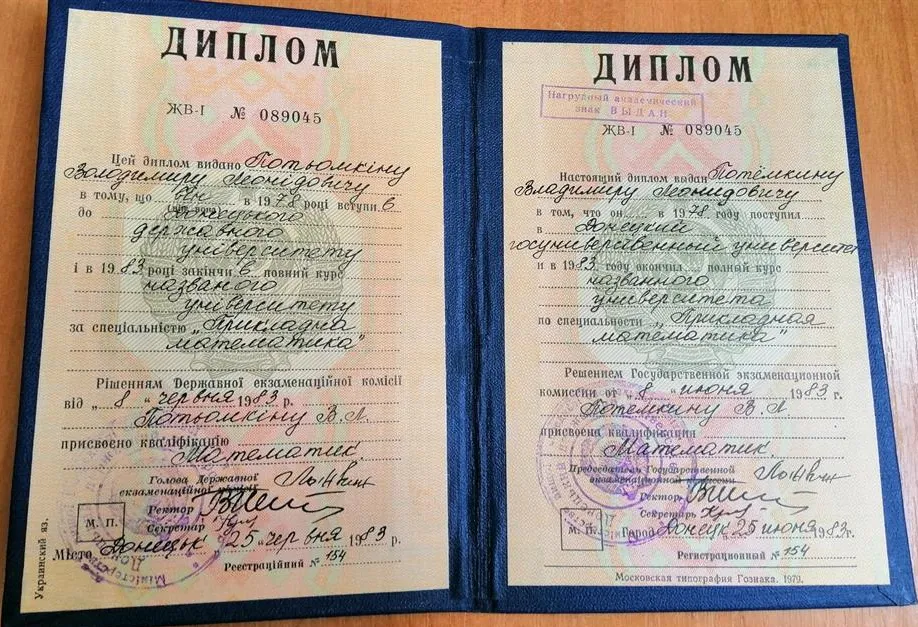 ДИПЛОМ
ЖВ-І № 089045
Цей диплом видано Потьомкіну
Володимиру Леонідовичу
в тому, що він в 1978 році вступив
до Донецького
державного
університету
і в 1983 році закінчив повний курс
названого
університету
за спеціальністю „Прикладна
математика"
Рішенням Державної екзаменаційної комісії
від „8" червня 1983 р.
Потьомкіну В.Л.
присвоєно кваліфікацію
Математик.
Голова Державної
екзаменаційної комісії
Ректор
Секретар
М. П.
Місто Донецьк 25 червня 1983 р.
Реєстраційний № 154
Украинский яз.
ДИПЛОМ
Нагрудный академический
знак ВЫДАН
ЖВ-І № 089045
Настоящий диплом выдан Потёмкину
Владимиру Леонидовичу
в том, что он в 1978 году поступил
в Донецкий
государственный университет
и в 1983 году окончил полный курс
названного
университета
по специальности „Прикладная
математика"
Решением Государственной экзаменационной
комиссии от „8" июня 1983 г.
Потёмкину В.Л.
присвоена квалификация
Математик.
Председатель Государственной
экзаменационной комиссии
Ректор
Секретарь
М. П.
Город Донецк, 25 июня 1983 г.
Регистрационный № 154
Московская типография Гознака. 1979.